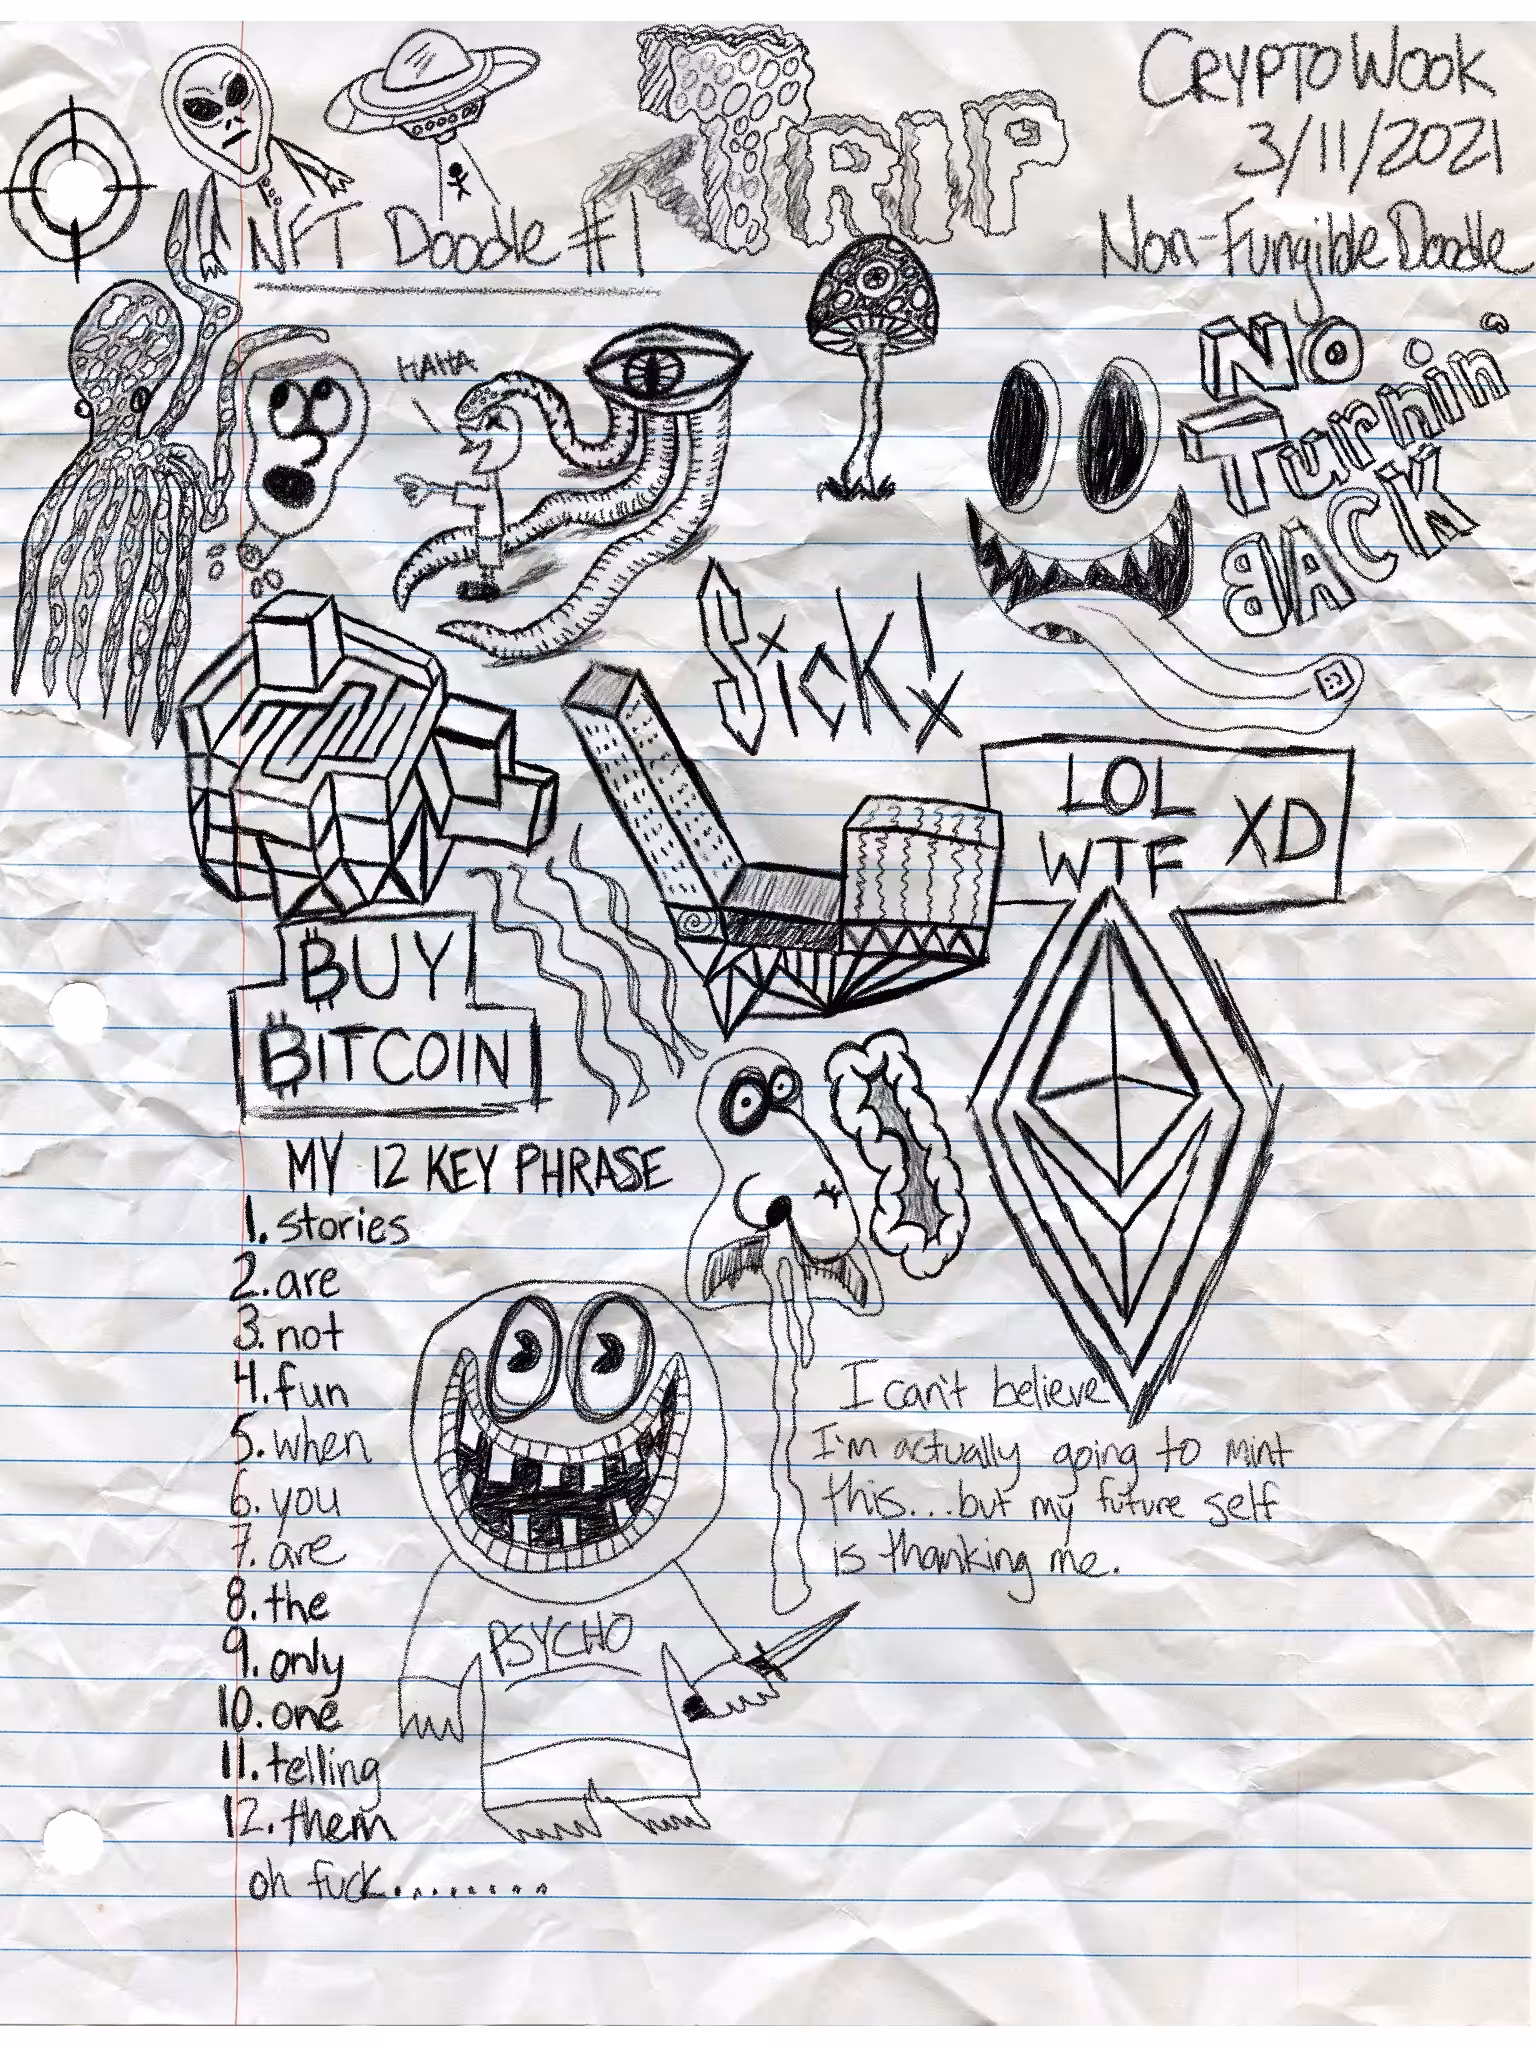 CRYPTO WOOK
3/11/2021
Non-Fungible Doodle
TRIP
NFT Doodle #1
HAHA
NO
Turnin'
BACK
Sick!
x
LOL
WTF XD
BUY
BITCOIN
MY 12 KEY PHRASE
1. stories
2. are
3. not
4. fun
5. when
6. you
7. are
8. the
9. only
10. one
11. telling
12. them
oh fuck.........
I can't believe
I'm actually going to mint
this...but my future self
is thanking me.
PSYCHO